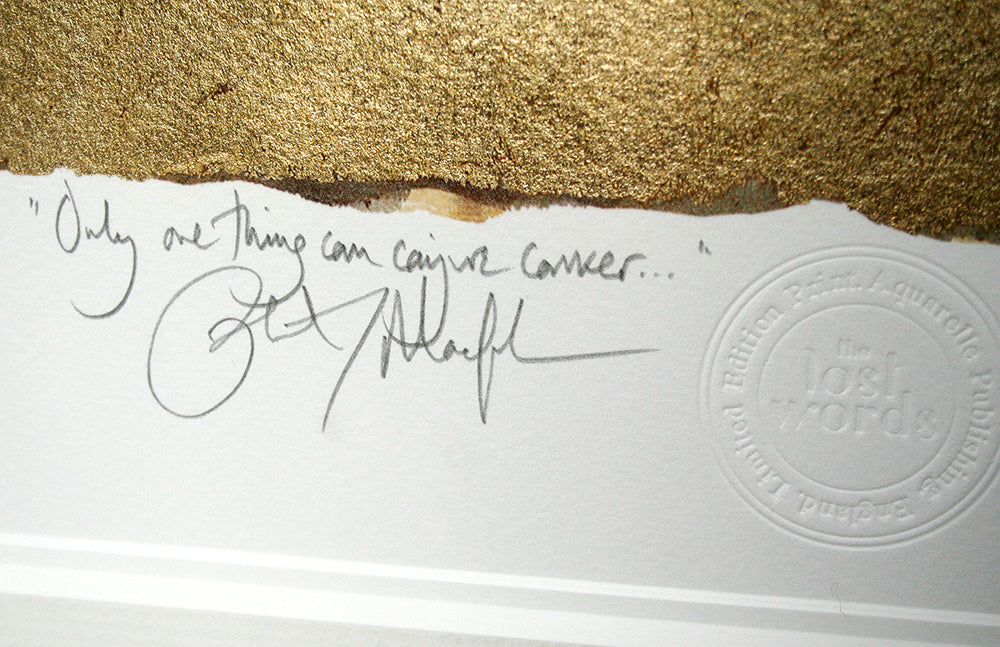 "Only one thing can conjure conker..."
Limited Edition Print. Aquarelle Publishing, England.
the
lost
words